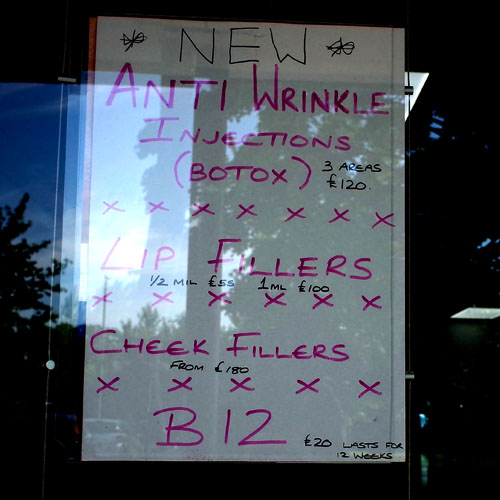 NEW
ANTI WRINKLE
INJECTIONS
(BOTOX) 3 AREAS
£120.
x x x x x x x
LIP FILLERS
1/2 MIL £55 1ML £100
x x x x x x
CHEEK FILLERS
FROM £180
x x x x x
B12 £20 LASTS FOR
12 WEEKS